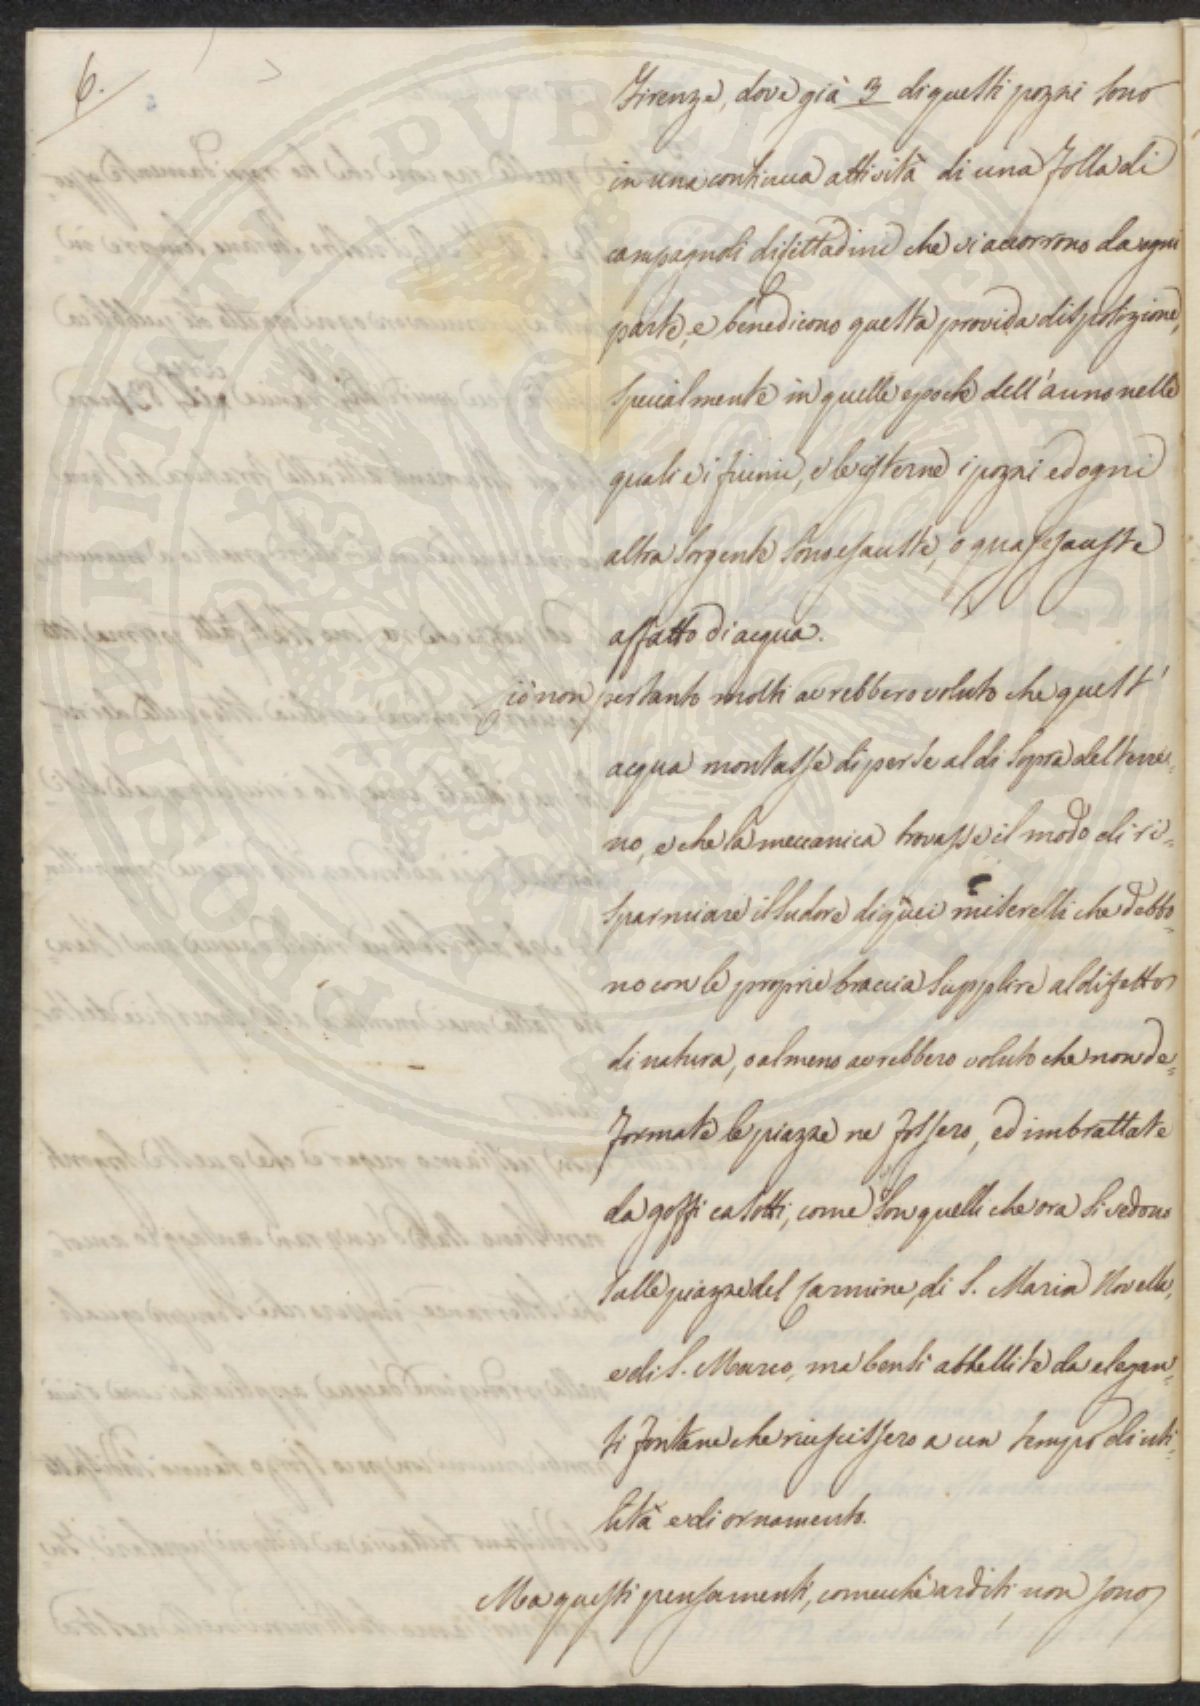 6.
Firenze, dove già 3 di questi pozzi sono
in una continua attività di una folla di
campagnoli di cittadini che vi accorrono da ogni
parte, e benedicono questa provida disposizione,
specialmente in quelle epoche dell'anno nelle
quali e i fiumi, e le cisterne i pozzi ed ogni
altra sorgente sono esauste, o quasi esauste
affatto di acqua.
Ciò non pertanto molti avrebbero voluto che quest'
acqua montasse di per se al di sopra del terre=
no, e che la meccanica trovasse il modo di ri=
sparmiare il sudore di quei miserelli che debbo=
no con le proprie braccia supplire al difetto
di natura, o almeno avrebbero voluto che non de=
formate le piazze ne fossero, ed imbrattate
da goffi casotti, come son quelli che ora si vedono
sulle piazze del Carmine, di S. Maria Novella,
e di S. Marco, ma bensì abbellite da elegan=
ti fontane che riuscissero a un tempo di uti=
lità e di ornamento.
Ma questi pensamenti, comecchè arditi, non sono
POSTERITATI PVBLICAE